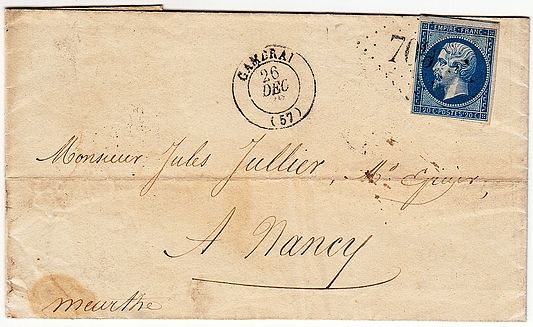 EMPIRE FRANC
20 C POSTES 20 C
CAMBRAI
26
DEC
(57)
Monsieur Jules Jullier, Md Epicier,
A Nancy
Meurthe